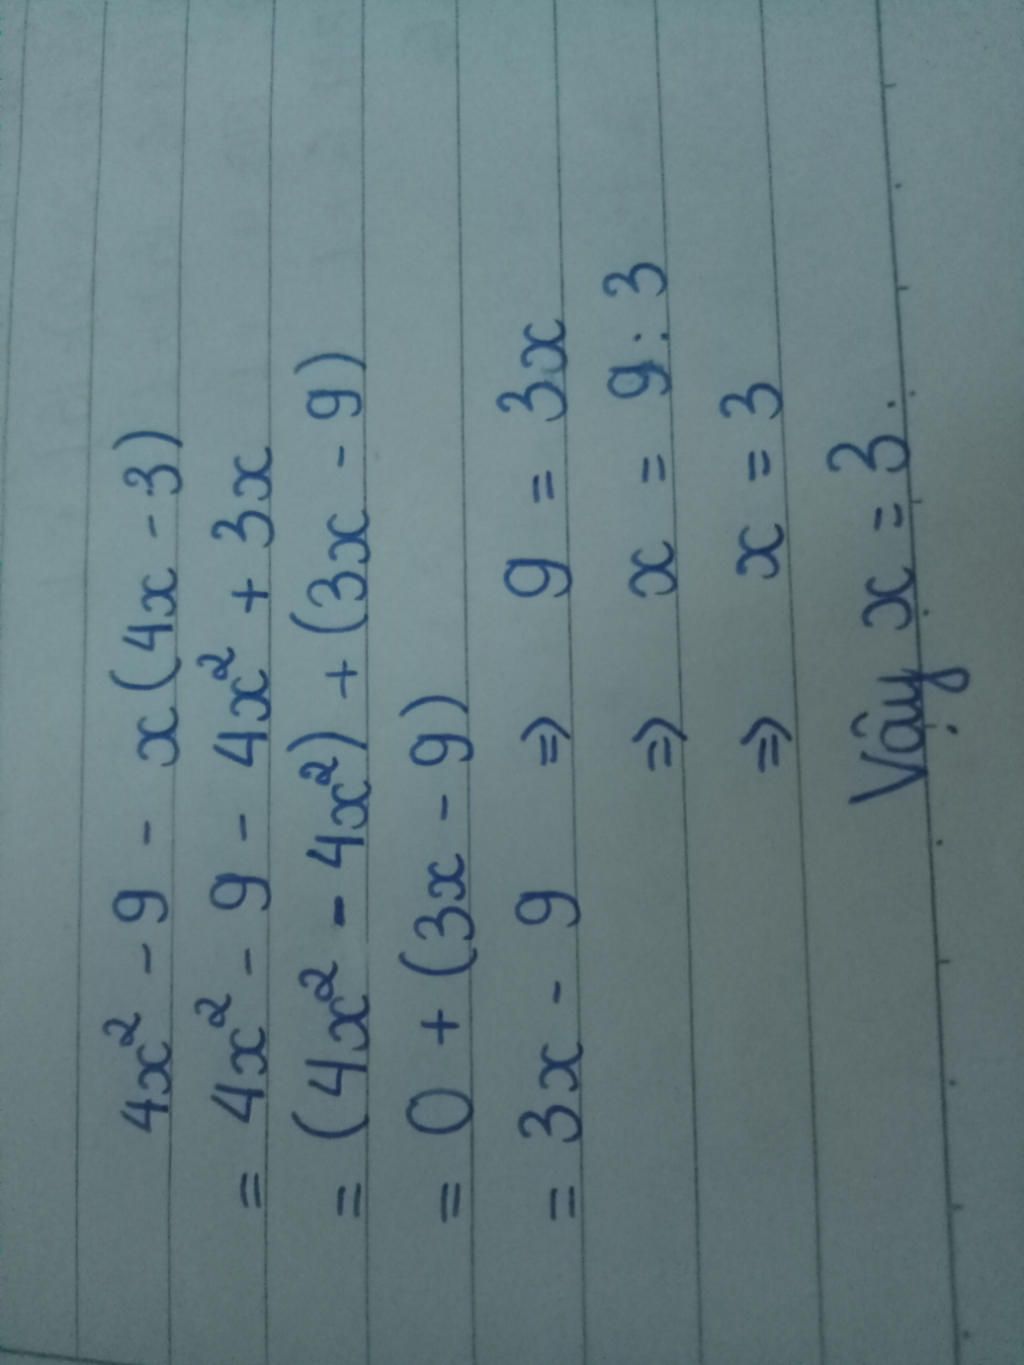 4x² - 9 - x(4x - 3)
= 4x² - 9 - 4x² + 3x
= (4x² - 4x²) + (3x - 9)
= 0 + (3x - 9)
= 3x - 9 => 9 = 3x
=> x = 9 : 3
=> x = 3
Vậy x = 3.